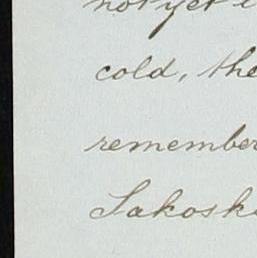 not yet
cold, the
remember
Lakosk